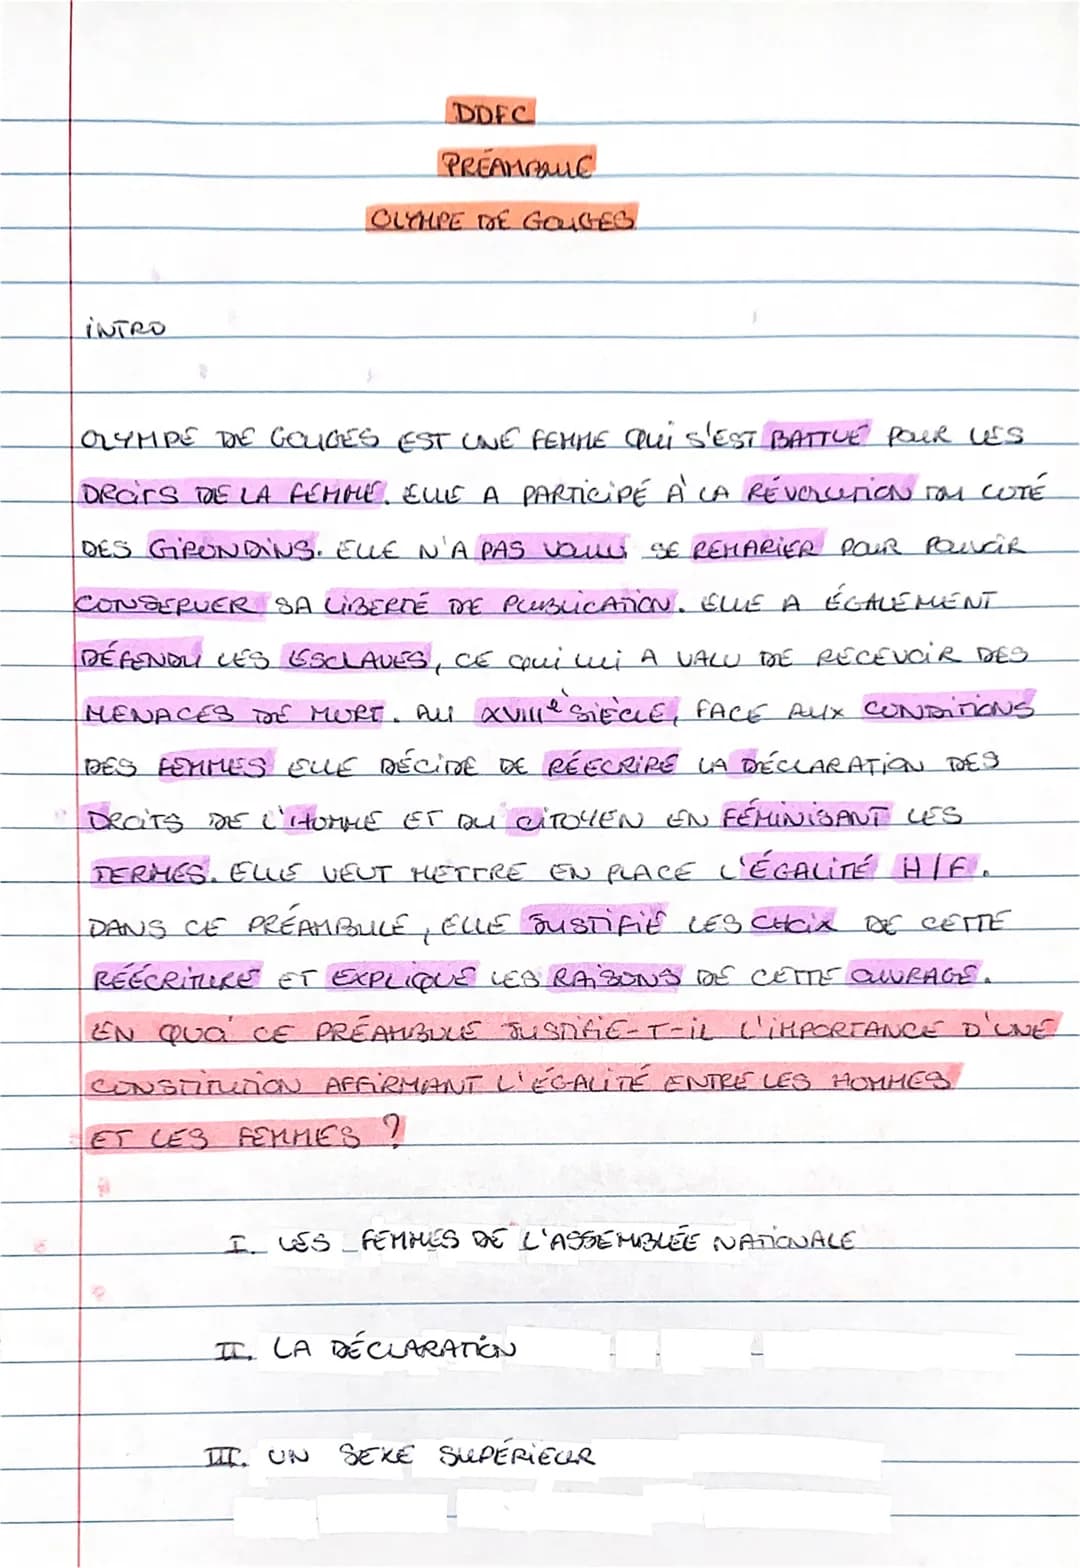 DDFC
PRÉAMBULE
OLYMPE DE GOUGES
INTRO
OLYMPE DE GOUGES EST UNE FEMME QUI S'EST BATTUE POUR LES
DROITS DE LA FEMME. ELLE A PARTICIPÉ À LA RÉVOLUTION DU COTÉ
DES GIRONDINS. ELLE N'A PAS VOULU SE REMARIER POUR POUVOIR
CONSERVER SA LIBERTÉ DE PUBLICATION. ELLE A ÉGALEMENT
DÉFENDU LES ESCLAVES, CE QUI LUI A VALU DE RECEVOIR DES
MENACES DE MORT. AU XVIIIe SIÈCLE, FACE AUX CONDITIONS
DES FEMMES ELLE DÉCIDE DE RÉECRIRE LA DÉCLARATION DES
DROITS DE L'HOMME ET DU CITOYEN EN FÉMINISANT LES
TERMES. ELLE VEUT METTRE EN PLACE L'ÉGALITÉ H/F.
DANS CE PRÉAMBULE, ELLE JUSTIFIE LES CHOIX DE CETTE
RÉÉCRITURE ET EXPLIQUE LES RAISONS DE CETTE OUVRAGE.
EN QUOI CE PRÉAMBULE JUSTIFIE-T-IL L'IMPORTANCE D'UNE
CONSTITUTION AFFIRMANT L'ÉGALITÉ ENTRE LES HOMMES
ET LES FEMMES ?
I. LES FEMMES DE L'ASSEMBLÉE NATIONALE
II. LA DÉCLARATION
III. UN SEXE SUPÉRIEUR